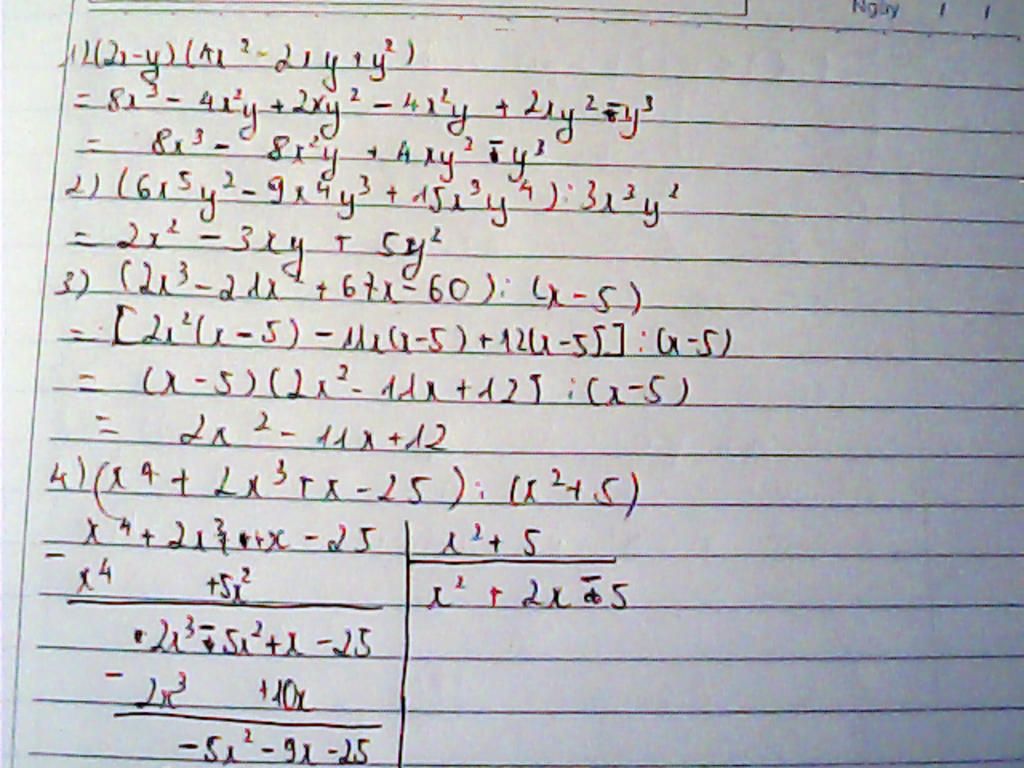 Ngày / /
1) (2x-y)(4x² - 2xy + y²)
= 8x³ - 4x²y + 2xy² - 4x²y + 2xy² - y³
= 8x³ - 8x²y + 4xy² - y³
2) (6x⁵y² - 9x⁴y³ + 15x³y⁴) : 3x³y²
= 2x² - 3xy + 5y²
3) (2x³ - 21x² + 67x - 60) : (x - 5)
= [2x²(x - 5) - 11x(x - 5) + 12(x - 5)] : (x - 5)
= (x - 5)(2x² - 11x + 12] : (x - 5)
= 2x² - 11x + 12
4) (x⁴ + 2x³ + x - 25) : (x² + 5)
x⁴ + 2x³ + x - 25 | x² + 5
- x⁴ + 5x² | x² + 2x - 5
2x³ - 5x² + x - 25
- 2x³ + 10x
- 5x² - 9x - 25